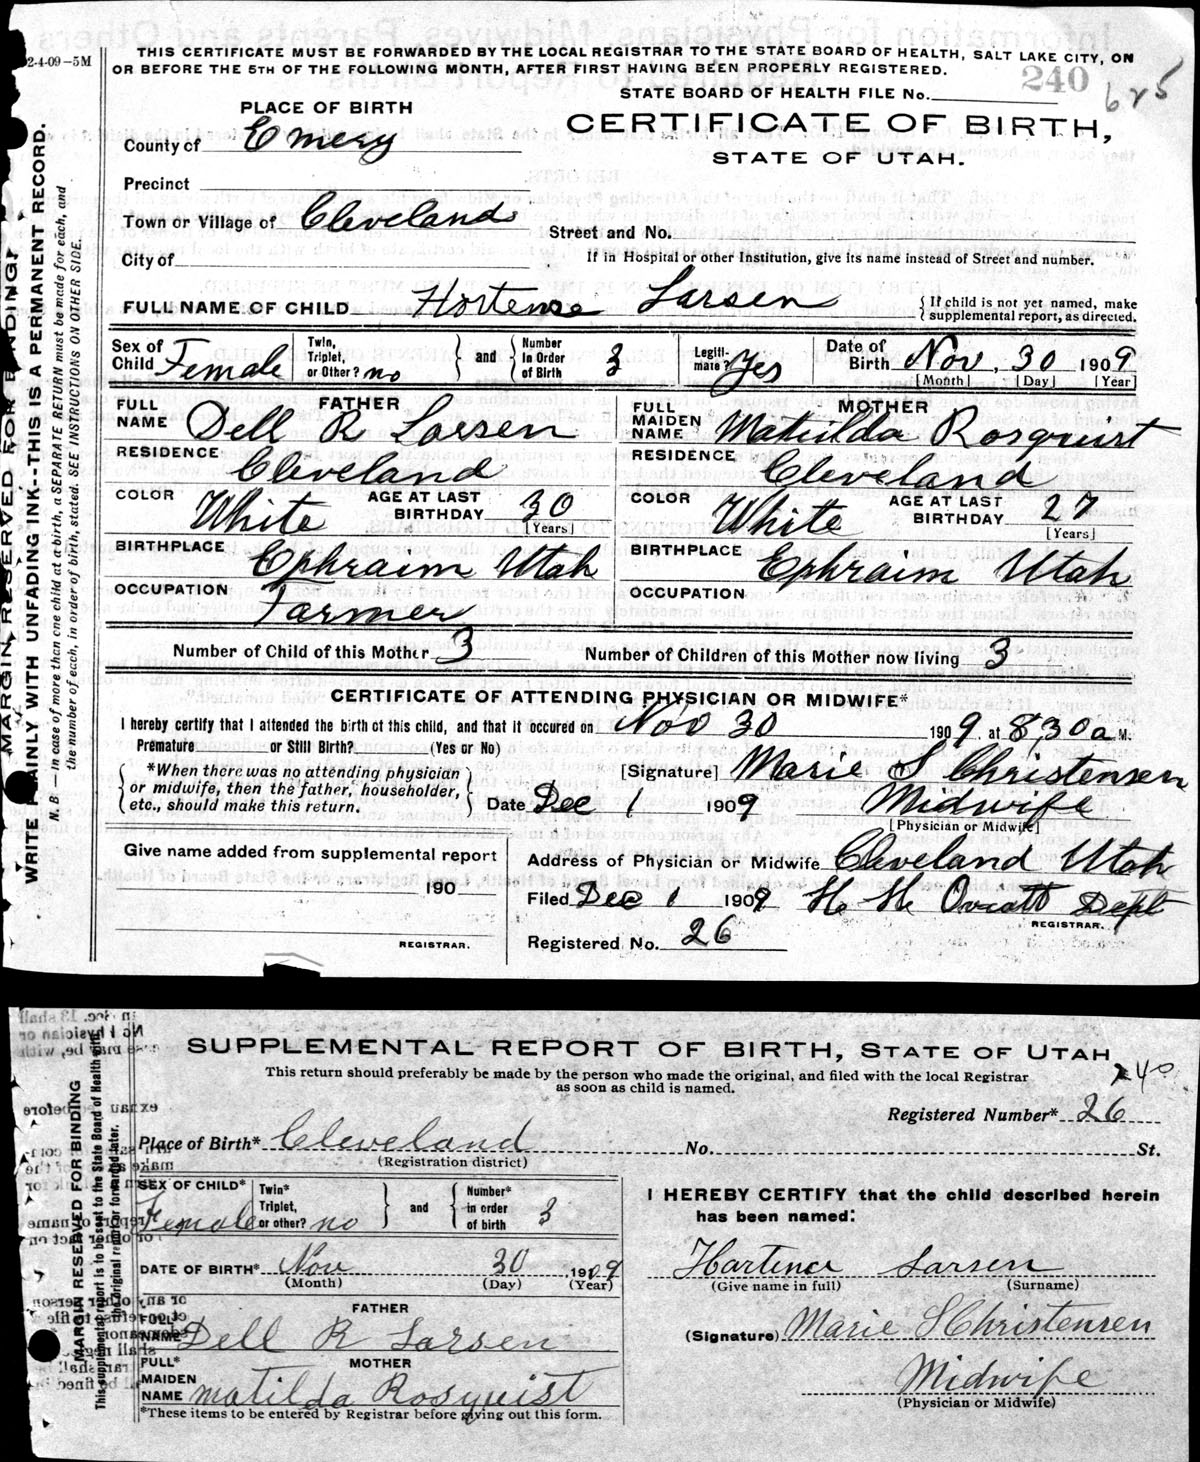 THIS CERTIFICATE MUST BE FORWARDED BY THE LOCAL REGISTRAR TO THE STATE BOARD OF HEALTH, SALT LAKE CITY, ON
OR BEFORE THE 5TH OF THE FOLLOWING MONTH, AFTER FIRST HAVING BEEN PROPERLY REGISTERED.
2-4-09-5M
240
625
STATE BOARD OF HEALTH FILE No.
PLACE OF BIRTH
CERTIFICATE OF BIRTH,
STATE OF UTAH.
County of Emery
Precinct
Town or Village of Cleveland
Street and No.
City of
If in Hospital or other Institution, give its name instead of Street and number.
FULL NAME OF CHILD Hortense Larsen
{ If child is not yet named, make
supplemental report, as directed.
Sex of Child Female
Twin, Triplet, or Other? no } and { Number in Order of Birth 3
Legitimate? Yes
Date of Birth Nov. 30 1909
[Month] [Day] [Year]
FATHER
FULL NAME Dell R Larsen
RESIDENCE Cleveland
COLOR White AGE AT LAST BIRTHDAY 30
[Years]
BIRTHPLACE Ephraim Utah
OCCUPATION Farmer
MOTHER
FULL MAIDEN NAME Matilda Rosquist
RESIDENCE Cleveland
COLOR White AGE AT LAST BIRTHDAY 27
[Years]
BIRTHPLACE Ephraim Utah
OCCUPATION
Number of Child of this Mother 3 Number of Children of this Mother now living 3
CERTIFICATE OF ATTENDING PHYSICIAN OR MIDWIFE*
I hereby certify that I attended the birth of this child, and that it occured on Nov 30 1909. at 8,30 a M.
Premature or Still Birth? (Yes or No)
{ *When there was no attending physician
or midwife, then the father, householder,
etc., should make this return. }
[Signature] Marie S Christensen
Date Dec 1 1909 Midwife
[Physician or Midwife]
Give name added from supplemental report
190
REGISTRAR.
Address of Physician or Midwife Cleveland Utah
Filed Dec 1 1909 H H Oviatt Dept
REGISTRAR.
Registered No. 26
MARGIN RESERVED FOR BINDING
WRITE PLAINLY WITH UNFADING INK--THIS IS A PERMANENT RECORD.
N. B.—In case of more than one child at birth, a SEPARATE RETURN must be made for each, and
the number of each, in order of birth, stated. SEE INSTRUCTIONS ON OTHER SIDE.
SUPPLEMENTAL REPORT OF BIRTH, STATE OF UTAH
This return should preferably be made by the person who made the original, and filed with the local Registrar
as soon as child is named.
240
Registered Number* 26
Place of Birth* Cleveland No. St.
(Registration district)
SEX OF CHILD* Female
Twin* Triplet, or other? no } and { Number* in order of birth 3
DATE OF BIRTH* Nov 30 1909
(Month) (Day) (Year)
FATHER
FULL* NAME Dell R Larsen
MOTHER
FULL* MAIDEN NAME Matilda Rosquist
*These items to be entered by Registrar before giving out this form.
I HEREBY CERTIFY that the child described herein
has been named:
Hartense Larsen
(Give name in full) (Surname)
(Signature) Marie S Christensen
Midwife
(Physician or Midwife)
MARGIN RESERVED FOR BINDING
This supplemental report is to be sent to the State Board of Health with
the original report or forwarded later.